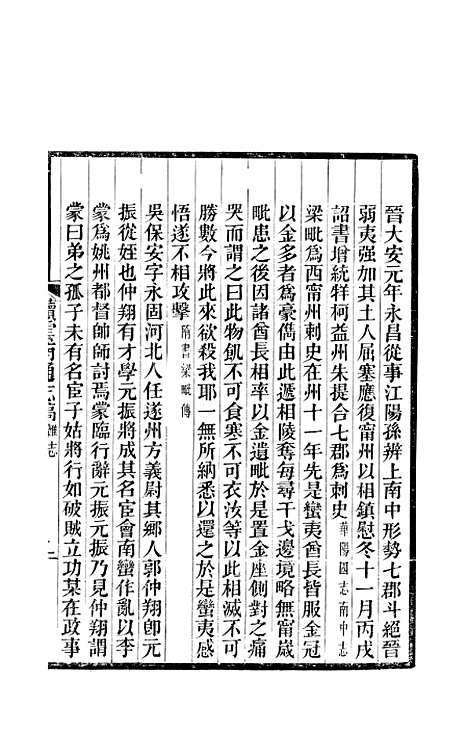 晉大安元年永昌從事江陽孫辨上南中形勢七郡斗絕晉
弱夷强加其土人屈塞應復甯州以相鎮慰冬十一月丙戌
詔書增統牂柯益州朱提合七郡爲刺史華陽國志南中志
梁毗爲西甯州刺史在州十一年先是蠻夷酋長皆服金冠
以金多者爲豪儁由此遞相陵奪每尋干戈邊境略無甯歲
毗患之後因諸酋長相率以金遺毗於是置金座側對之痛
哭而謂之曰此物飢不可食寒不可衣汝等以此相滅不可
勝數今將此來欲殺我耶一無所納悉以還之於是蠻夷感
悟遂不相攻擊隋書梁毗傳
吳保安字永固河北人任遂州方義尉其鄉人郭仲翔卽元
振從姪也仲翔有才學元振將成其名宦會南蠻作亂以李
蒙爲姚州都督師師討焉蒙臨行辭元振元振乃見仲翔謂
蒙曰弟之孤子未有名宦子姑將行如破賊立功某在政事
續雲南通志稿 雜志